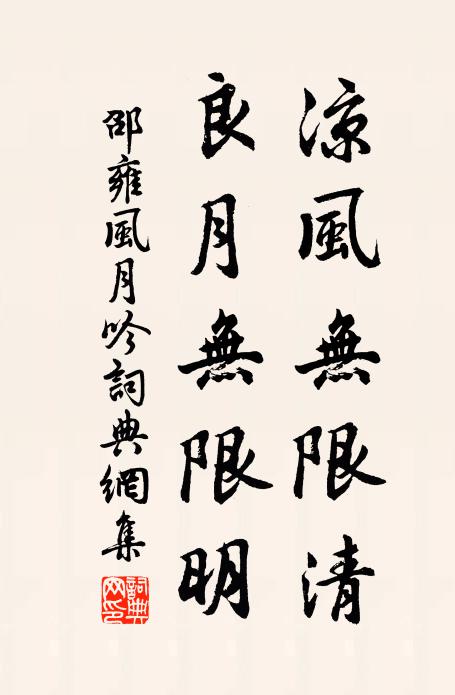 涼風無限清
良月無限明
邵雍風月吟詞典網集
詞典網印